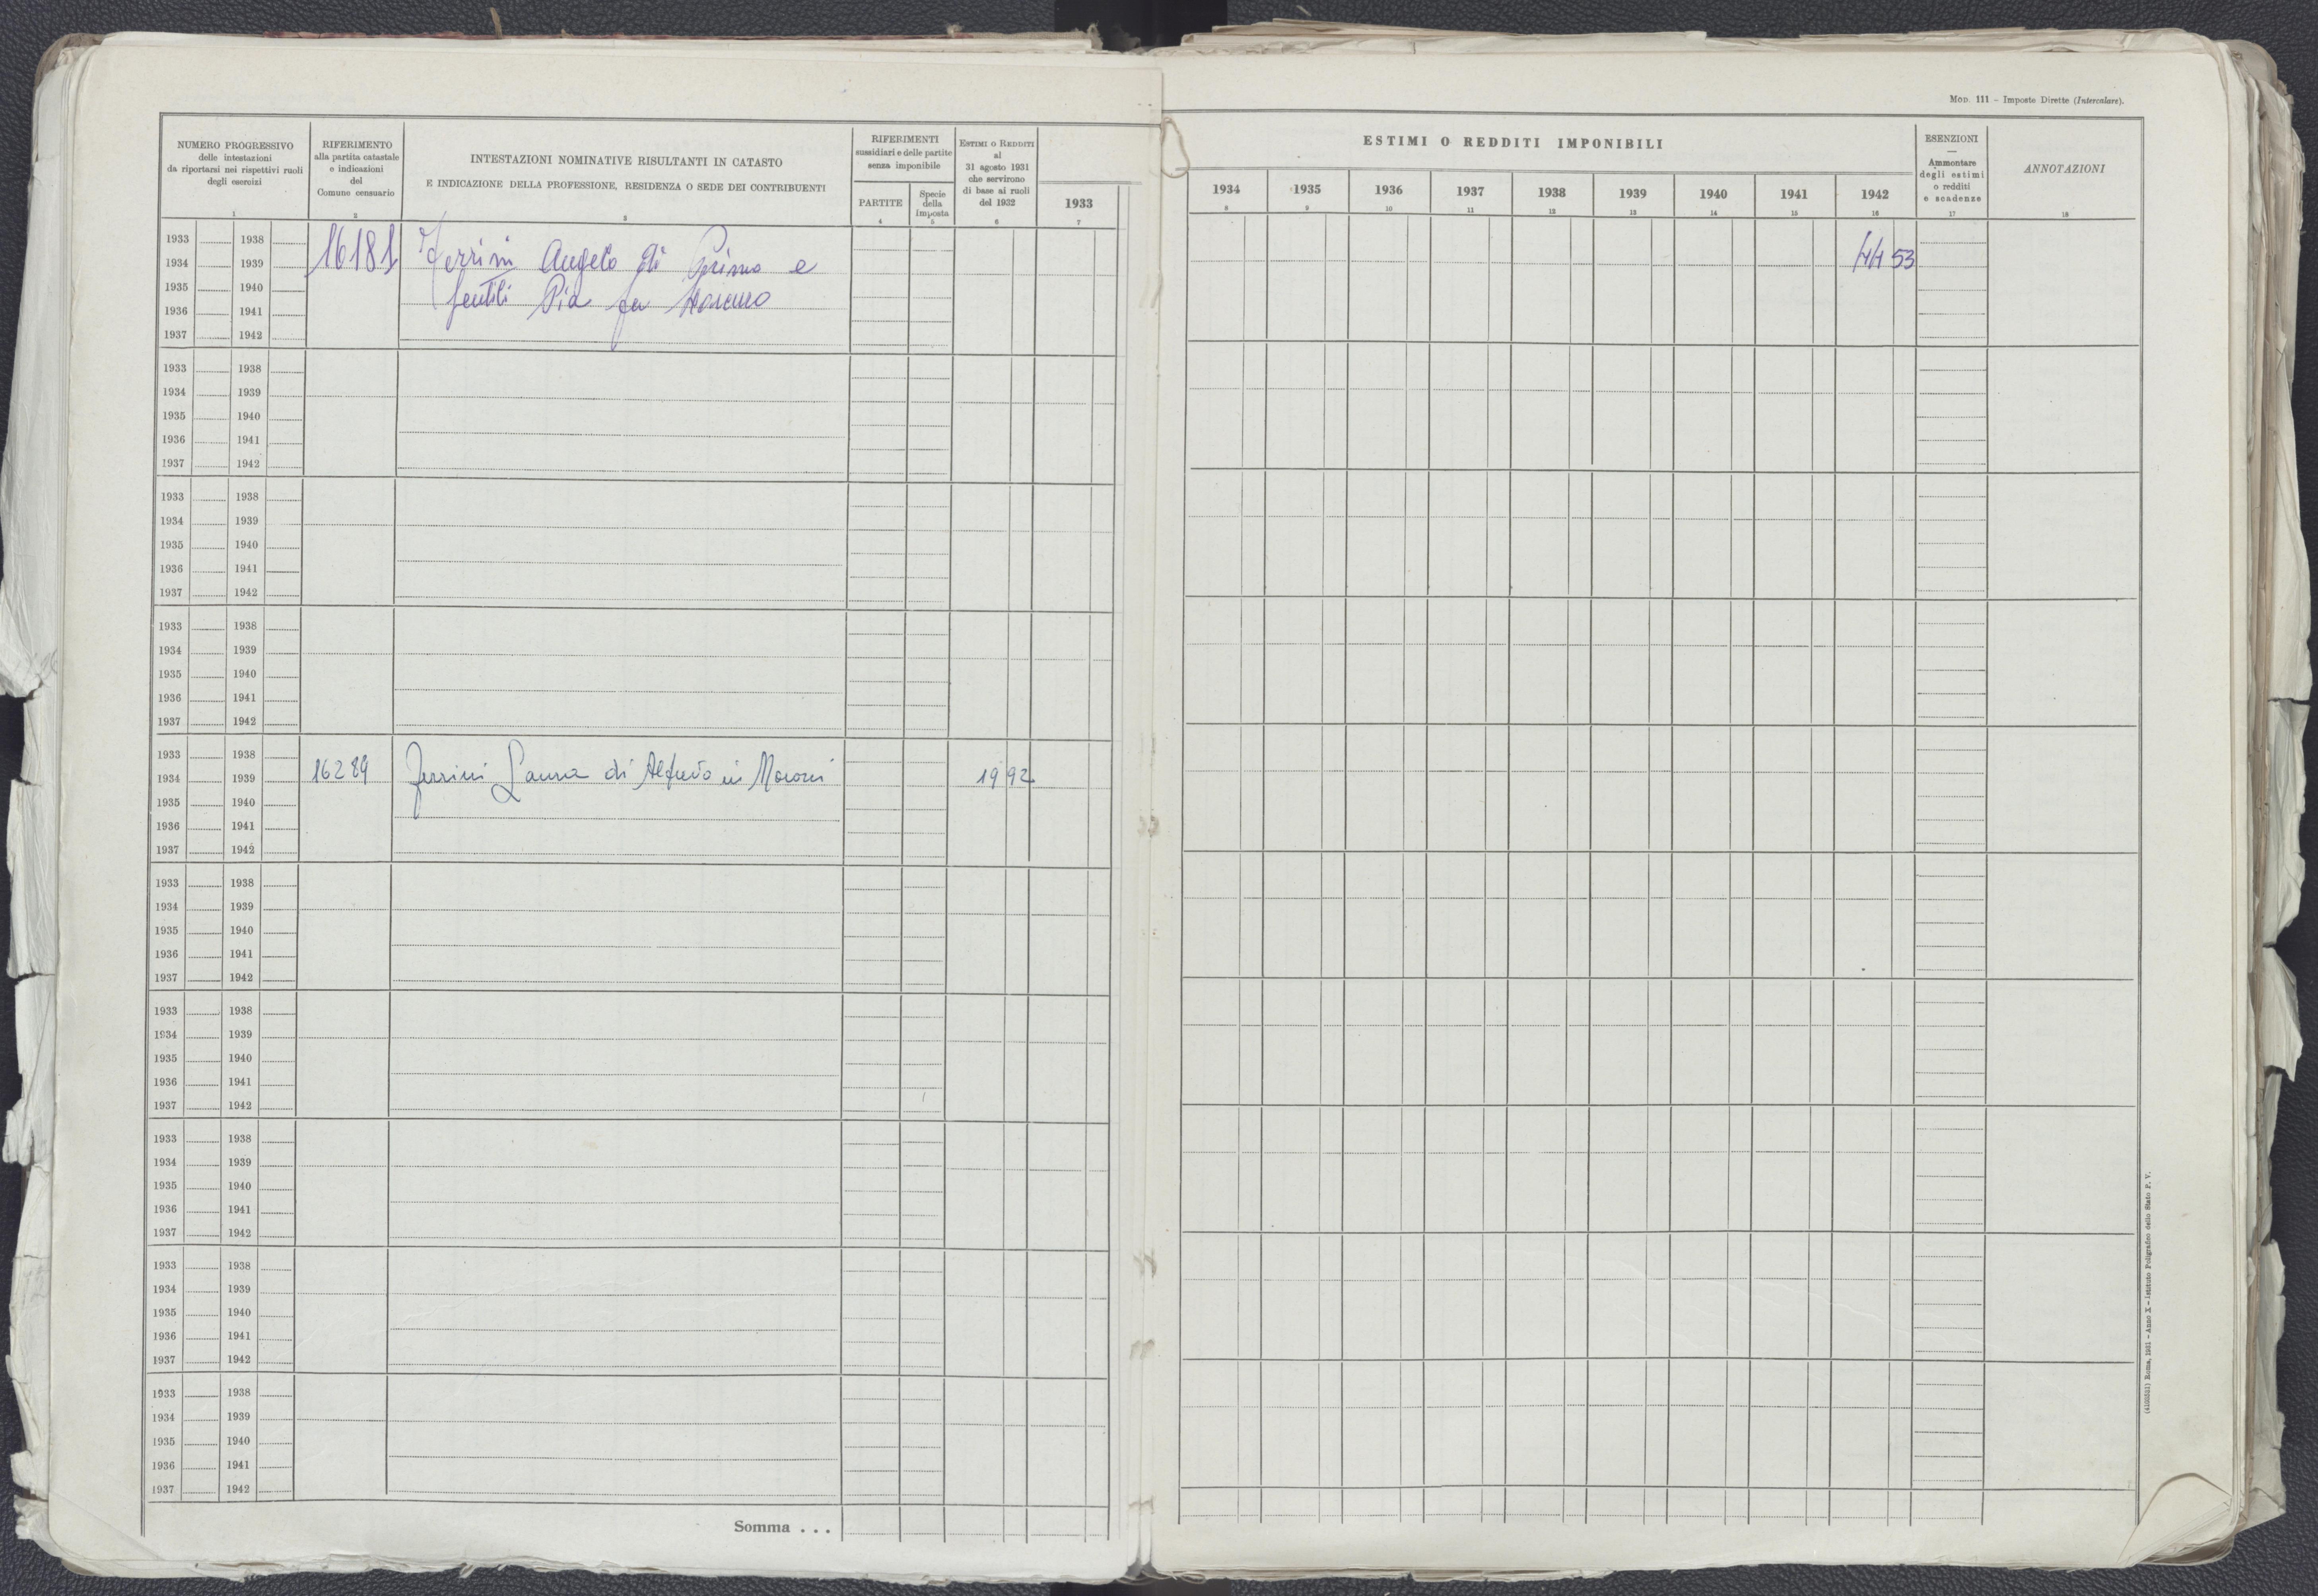 MOD. 111 – Imposte Dirette (Intercalare).
NUMERO PROGRESSIVO
delle intestazioni
da riportarsi nei rispettivi ruoli
degli esercizi
1
RIFERIMENTO
alla partita catastale
e indicazioni
del
Comune censuario
2
INTESTAZIONI NOMINATIVE RISULTANTI IN CATASTO
E INDICAZIONE DELLA PROFESSIONE, RESIDENZA O SEDE DEI CONTRIBUENTI
3
RIFERIMENTI
sussidiari e delle partite
senza imponibile
PARTITE
4
Specie
della
imposta
5
ESTIMI O REDDITI
al
31 agosto 1931
che servirono
di base ai ruoli
del 1932
6
1933
7
ESTIMI O REDDITI IMPONIBILI
1934 1935 1936 1937 1938 1939 1940 1941 1942
8 9 10 11 12 13 14 15 16
ESENZIONI
—
Ammontare
degli estimi
o redditi
e scadenze
17
ANNOTAZIONI
18
1933 1938
1934 1939 16181 Ferrini Angelo di Primo e 44 53
1935 1940 Gentili Pia fu
1936 1941
1937 1942
1933 1938
1934 1939
1935 1940
1936 1941
1937 1942
1933 1938
1934 1939
1935 1940
1936 1941
1937 1942
1933 1938
1934 1939
1935 1940
1936 1941
1937 1942
1933 1938
1934 1939 16289 Ferrini Laura di Alfredo in Moroni 19 92
1935 1940
1936 1941
1937 1942
1933 1938
1934 1939
1935 1940
1936 1941
1937 1942
1933 1938
1934 1939
1935 1940
1936 1941
1937 1942
1933 1938
1934 1939
1935 1940
1936 1941
1937 1942
1933 1938
1934 1939
1935 1940
1936 1941
1937 1942
1933 1938
1934 1939
1935 1940
1936 1941
1937 1942
Somma . . .
(4103551) Roma, 1931 – Anno X – Istituto Poligrafico dello Stato P. V.